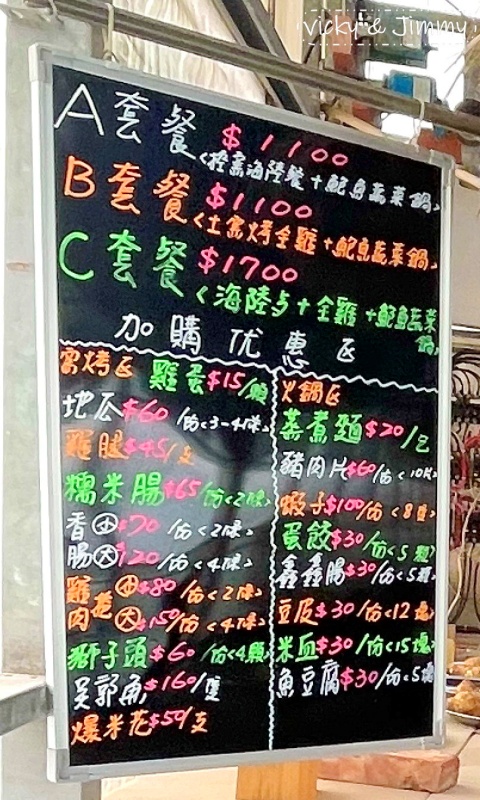 vicky & Jimmy
A套餐 $1100
<控窯海陸餐+鮑魚蔬菜鍋>
B套餐 $1100
<土窯烤全雞+鮑魚蔬菜鍋>
C套餐 $1700
<海陸+全雞+鮑魚蔬菜
鍋>
加購优惠区
窯烤区 雞蛋$15/顆
地瓜$60/份<3-4條>
雞腿$45/支
糯米腸$65/份<2條>
香 小$70/份<2條>
腸 大$120/份<4條>
雞 小$80/份<2條>
肉捲 大$150/份<4條>
獅子頭$60/份<4顆>
吳郭魚$160/隻
爆米花$50/支
火鍋区
蒸煮麵$20/包
豬肉片$60/份<10片>
蝦子$100/份<8隻>
蛋餃$30/份<5顆>
鑫鑫腸$30/份<5顆>
豆皮$30/份<12塊>
米血$30/份<15塊>
魚豆腐$30/份<5塊>